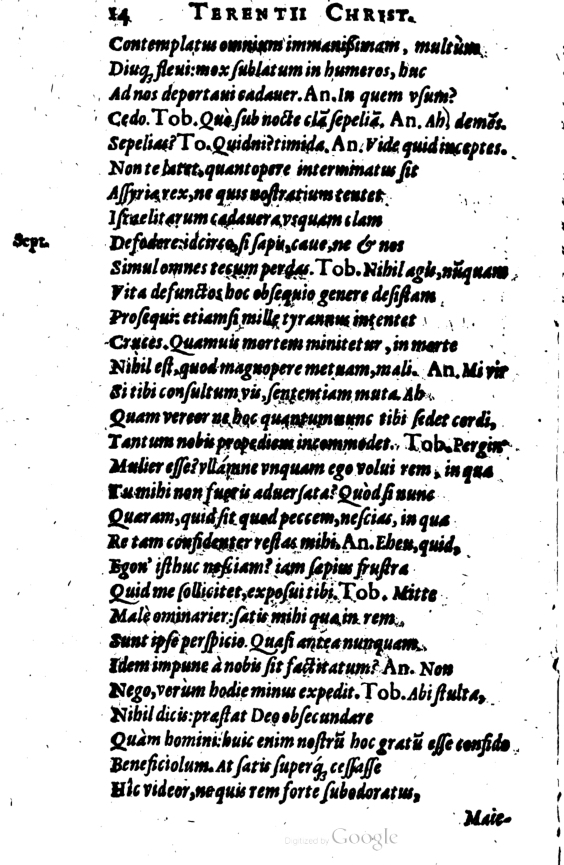 14 TERENTII CHRIST.
Contemplatus omnium immanißimam, multùm
Diuq₃ fleui: mox ſublatum in humeros, huc
Ad nos deportaui cadauer. An. In quem vſum?
Cedo. Tob. Quò ſub nocte clā ſepeliā. An. Ah, demēs.
Sepelias? To. Quidni? timida. An. Vide quid inceptes.
Non te latet, quantopere interminatus ſit
Aſſyria rex, ne quis noſtratium tentet
Iſraelitarum cadauera vſquam clam
Sept. Defodere: idcirco, ſi ſapis, caue, ne & nos
Simul omnes tecum perdas. Tob. Nihil agis, nūquam
Vita defunctos hoc obſequio genere deſiſtam
Proſequi: etiamſi mille tyrannus intentet
Cruces. Quamuis mortem minitetur, in morte
Nihil eſt, quod magnopere metuam, mali. An. Mi vir
Si tibi conſultum vis, ſententiam muta. Ah
Quam vereor ne hoc quantum nunc tibi ſedet cordi,
Tantum nobis propediem incommodet. Tob. Pergin'
Mulier eſſe? vllámne vnquam ego volui rem, in qua
Tu mihi non fueris aduerſata? Quòd ſi nunc
Quæram, quid ſit quod peccem, neſcias, in qua
Re tam confidenter reſtas mihi. An. Eheu, quid,
Egon' iſthuc neſciam? iam ſæpius fruſtra
Quid me ſollicitet, expoſui tibi. Tob. Mitte
Malè ominarier: ſatis mihi qua in rem
Sunt ipſe perſpicio. Quaſi antea nunquam
Idem impune à nobis ſit factitatum? An. Non
Nego, verùm hodie minus expedit. Tob. Abi ſtulta,
Nihil dicis: præſtat Deo obſecundare
Quàm homini: huic enim noſtrū hoc gratū eſſe confido
Beneficiolum. At ſatis ſuperq́₃ ceſſaſſe
Hîc videor, ne quis rem forte ſubodoratus,
Maie-
Digitized by Google